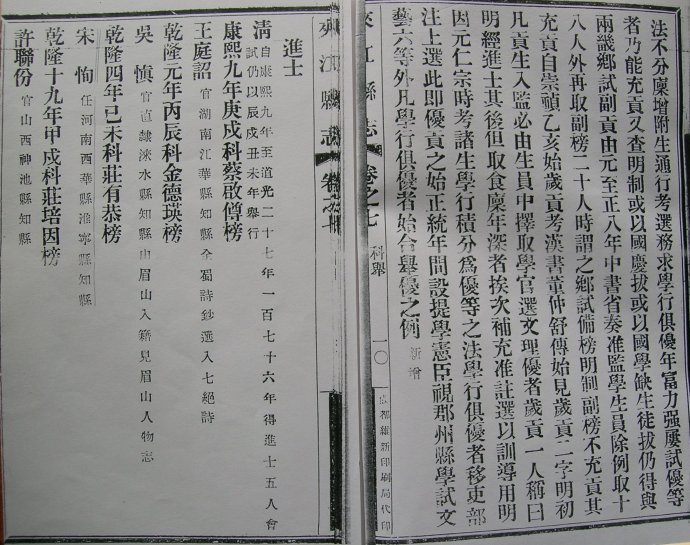 法不分廩增附生通行考選務求學行俱優年富力强屢試優等
者乃能充貢又查明制或以國慶拔或以國學缺生徒拔仍得與
兩畿鄉試副貢由元至正八年中書省奏准監學生員除例取十
八人外再取副榜二十人時謂之鄉試備榜明制副榜不充貢其
充貢自崇禎乙亥始歲貢考漢書董仲舒傳始見歲貢二字明初
凡貢生入監必由生員中擇取學官選文理優者歲貢一人稱曰
明經進士其後但取食廩年深者挨次補充准註選以訓導用明
因元仁宗時考諸生學行積分爲優等之法學行俱優者移吏部
注上選此即優貢之始正統年間設提學憲臣視郡州縣學試文
藝六等外凡學行俱優者始合舉優之例 新增
夾江縣志 卷之七 科舉 一〇 成都維新印刷局代印
夾江縣志 卷之七
進士
清 自康熙九年至道光二十七年一百七十六年得進士五人會試仍以辰戌丑未年舉行
康熙九年庚戌科蔡啟僔榜
王庭詔 官湖南江華縣知縣全蜀詩鈔選入七絕詩
乾隆元年丙辰科金德瑛榜
吳慎 官直隸淶水縣知縣由眉山入籍見眉山人物志
乾隆四年己未科莊有恭榜
宋恂 任河南西華縣淮寧縣知縣
乾隆十九年甲戌科莊培因榜
許聯份 官山西神池縣知縣